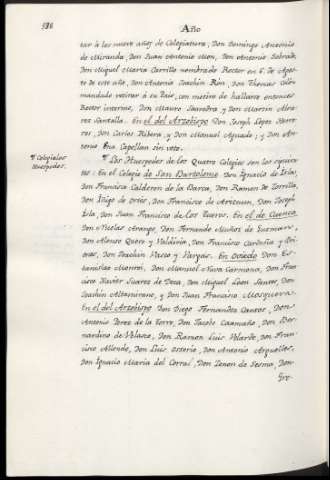 Año
tar à los nueve años de Colegiatura, Don Domingo Antonio
de Miranda, Don Juan Antonio Mon, Don Antonio Sobrado,
Don Miguel Maria Carrillo nombrado Rector en 6. de Agos-
to de este año, Don Antonio Joachin Rón, Don Thomas
mandado retirar à su Pais, con motivo de hallarse entonces
Rector interino, Don Mauro Saavedra y Don Martin Alva-
rez Santulla. En el del Arzobispo Don Joseph Lopez Herre-
ros, Don Carlos Ribera, y Don Manuel Aguado; y Don An-
tonio Capellan sin voto.
¶ Colegiales
Huespedes.
¶ Los Huespedes de los Quatro Colegios son los siguien-
tes: En el Colegio de San Bartolomé Don Ignacio de Isla,
Don Francisco Calderon de la Barca, Don Ramon de Zorrilla,
Don Iñigo de Don Francisco de Don Joseph
Isla, Don Juan Francisco de los Eueros. En el de Cuenca
Don Nicolas Arango, Don Fernando Muñoz de Guzman,
Don Alonso Quero y Valdivia, Don Francisco y
Don Joachin Vaca y Vargas. En Oviedo Don Es-
tanislao Don Manuel Nava Carmona, Don Fran-
cisco Xavier Suarez de Deza, Don Miguel Leon Santos, Don
Joachin Altamirano, y Don Juan Francisco Mosquera.
En el del Arzobispo Don Diego Fernandez Cantos, Don
Antonio Perez de la Torre, Don Jacobo Caamaño, Don Ber-
nardino de Velasco, Don Ramon Luis Velarde, Don Fran-
cisco Allende, Don Luis Osorio, Don Antonio Arguelles,
Don Ignacio Maria del Corral, Don Zenon de Sesma, Don
Gre-